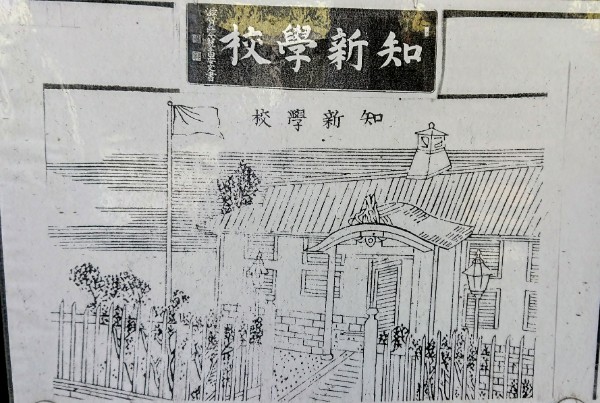 知新學校
知新學校